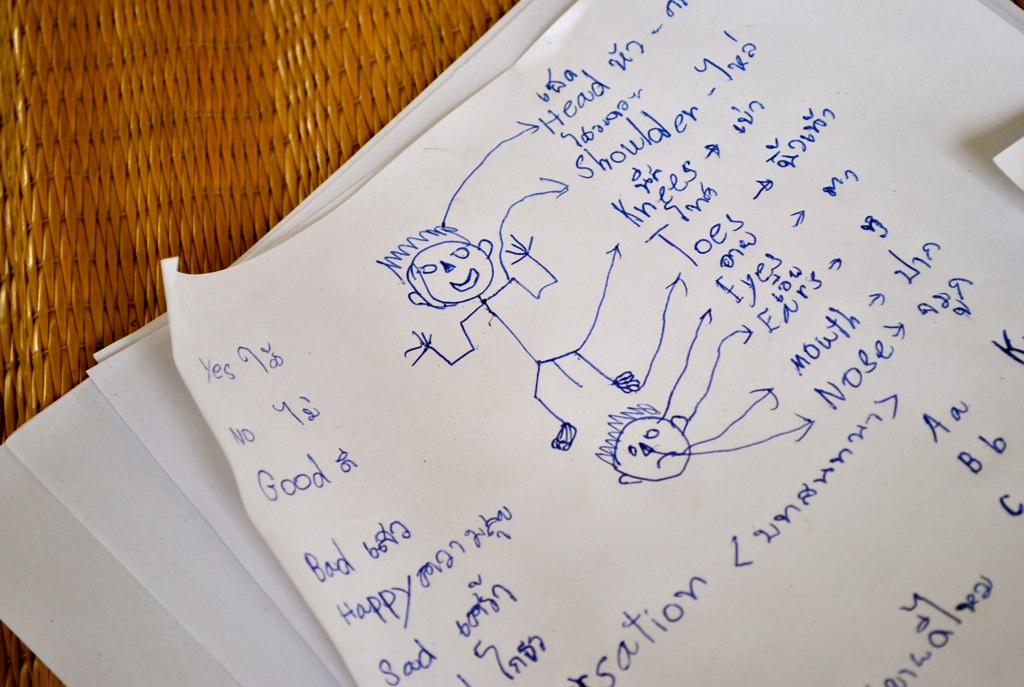 เฮด
Head หัว -
โชวเดอร
shoulder - ไหล่
นีส
Knees → เข่า
โทส
Toes → นิ้วเท้า
อาย
Eyes → ตา
Ears → หู
mouth → ปาก
Nose → จมูก
Yes ใช่
No ไม่
Good ดี
Bad เลว
Happy ความสุข
Sad เศร้า
โกรธ
sation (บทสนทนา)
A a
B b
C
K